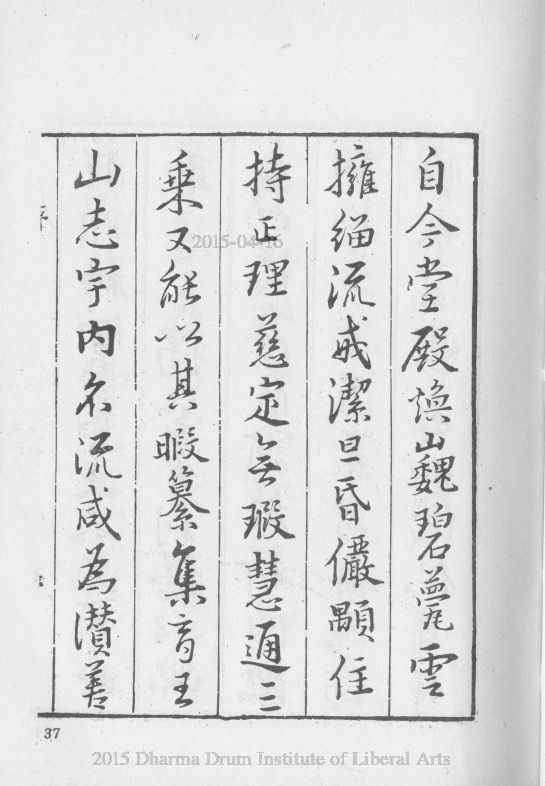 自今堂殿煥巍碧甍雲
擁緇流戒潔旦昏儼顒住
持正理慈定無瑕慧通三
乘又能以其暇纂集育王
山志宇内名流咸為讚善
序
37
2015-04-16
2015 Dharma Drum Institute of Liberal Arts